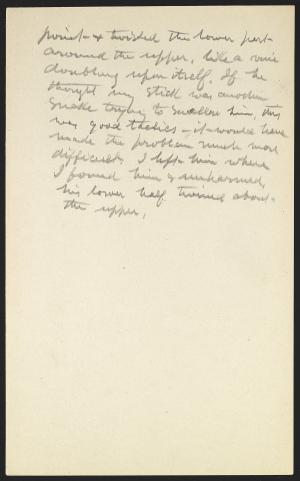 point & twisted the lower part
around the upper, like a vine
doubling upon itself. If he
thought my stick was another
snake trying to swallow him, this
was good tactics – it would have
made the problem much more
difficult. I left him where
I found him & unharmed,
his lower half twined about
the upper.